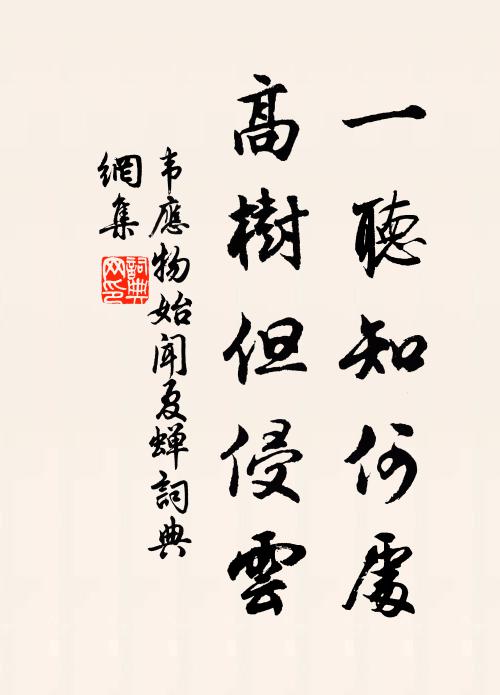 一聽知何處
高樹但侵雲
韦應物始聞夏蟬詞典
網集
詞典
网印